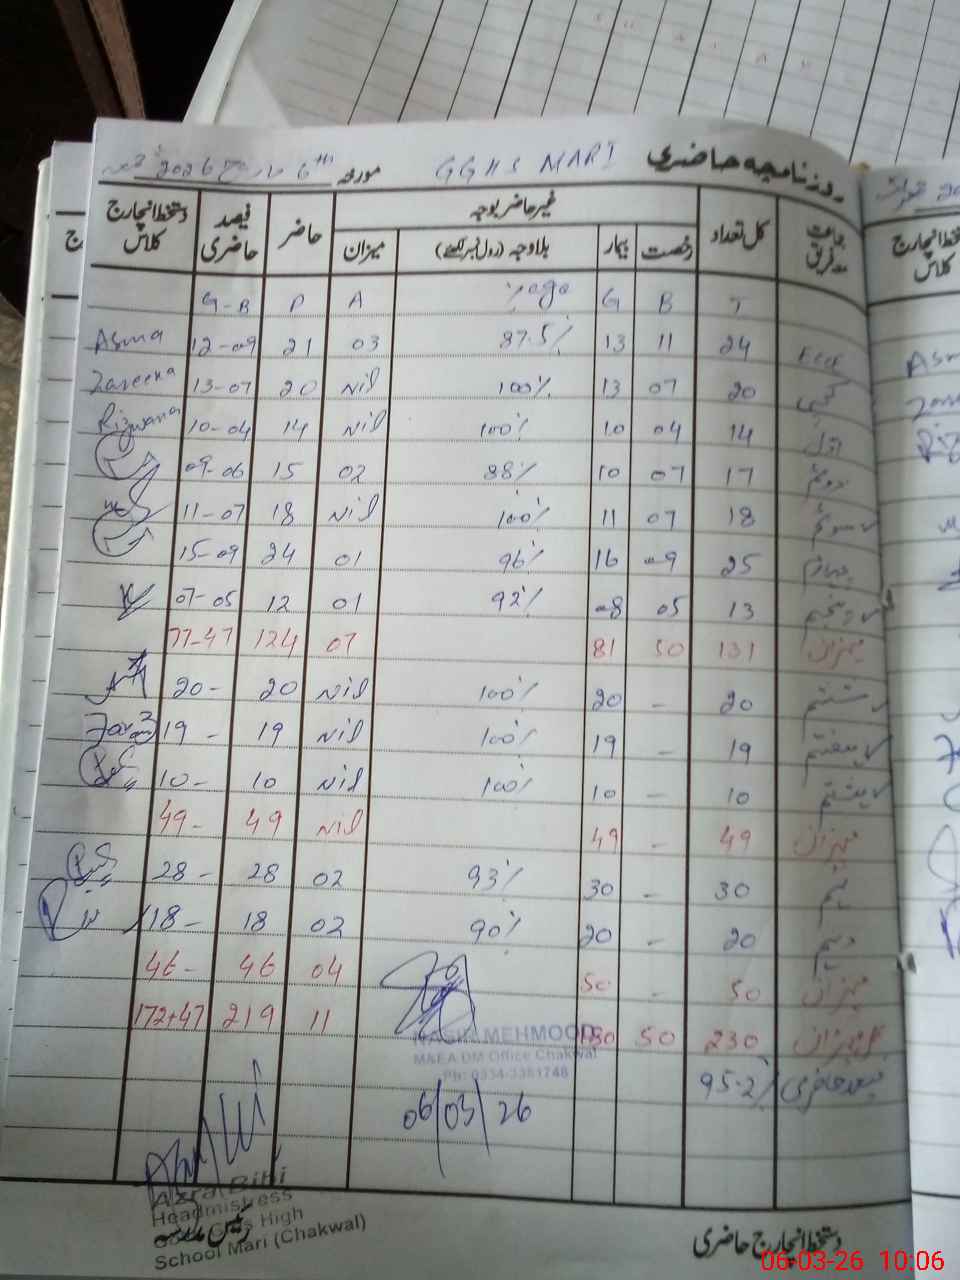 روزنامچہ حاضری GGHS MARI مورخہ 6th مارچ 2026ء
جماعت مع فریق کل تعداد غیر حاضر بوجہ حاضر فیصد حاضری دستخط انچارج کلاس
رخصت بیمار بلاوجہ (رول نمبر لکھئے) میزان
T B G %age A P G-B
ECCE 24 11 13 87.5% 03 21 12-09 Asma
کچی 20 07 13 100% Nil 20 13-07 Zareena
اول 14 04 10 100% Nil 14 10-04 Rizwana
دوئم 17 07 10 88% 02 15 09-06
سوئم 18 07 11 100% Nil 18 11-07
چہارم 25 09 16 96% 01 24 15-09
پنجم 13 05 08 92% 01 12 07-05
میزان 131 50 81 07 124 77-47
ششم 20 - 20 100% Nil 20 20-
ہفتم 19 - 19 100% Nil 19 19-
ہشتم 10 - 10 100% Nil 10 10-
میزان 49 - 49 Nil 49 49-
نہم 30 - 30 93% 02 28 28-
دہم 20 - 20 90% 02 18 18-
میزان 50 - 50 04 46 46-
کل میزان 230 50 180 11 219 172+47
فیصد حاضری 95.2%
NASIR MEHMOOD
MAEA DM Office Chakwal
Ph: 0334-3381748
06/03/26
Azra Bibi
Headmistress
رئیس مدرسہ
Govt Girls High
School Mari (Chakwal)
دستخط انچارج حاضری
دستخط انچارج کلاس
06-03-26 10:06